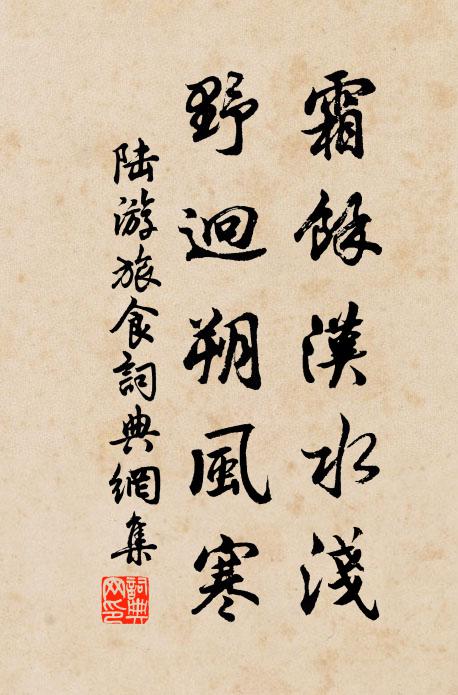 霜餘漢水淺
野迥朔風寒
陸游旅食詞典網集
詞典網印